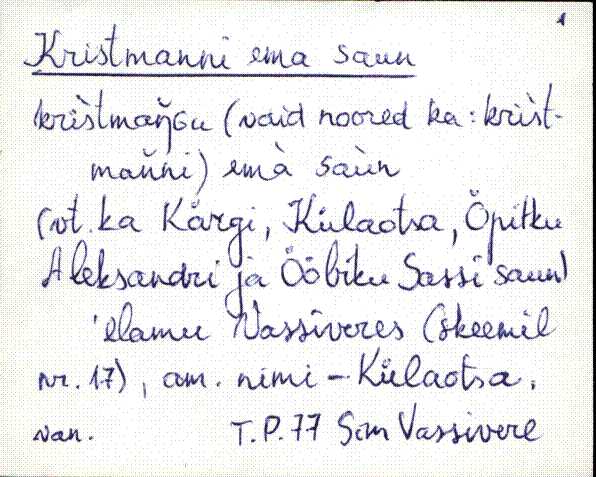 1
Kristmanni ema saun
krìstmaŋ̆Gu (vaid noored ka: krìst-
mañ̆ni) emà saùn
(vt. ka Kärgi, Külaotsa, Õpitku
Aleksandri ja Ööbiku Sassi saun)
'elamu Vassiveres (skeemil
nr. 17), am. nimi – Külaotsa.
van. T.P.77 Sim Vassivere